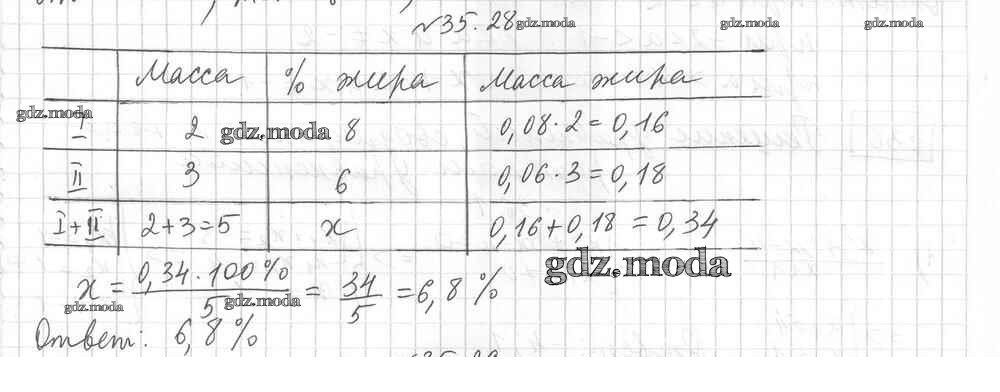 №35.28 gdz.moda gdz.moda gdz.moda
Масса % жира Масса жира
gdz.moda
I 2 gdz.moda 8 0,08·2=0,16
II 3 6 0,06·3=0,18
I+II 2+3=5 x 0,16+0,18=0,34
gdz.moda
x = 0,34·100% / 5 = 34/5 = 6,8%
gdz.moda gdz.moda
Ответ: 6,8%